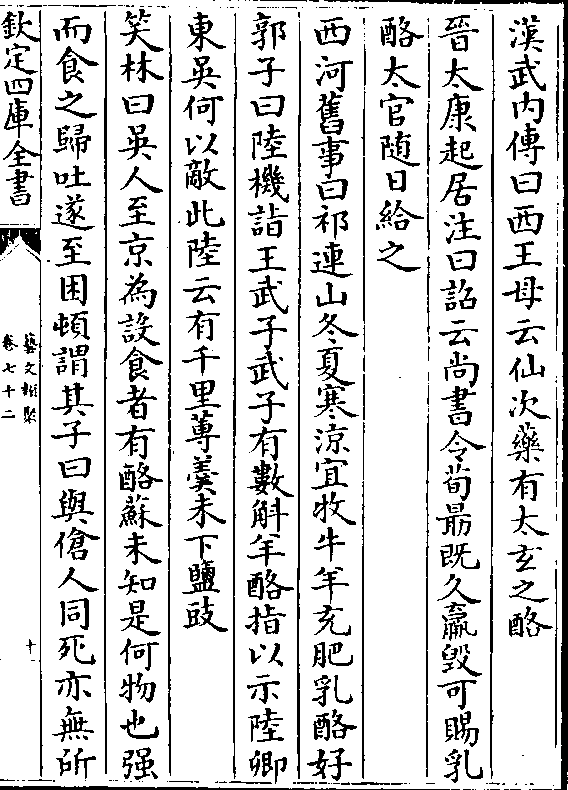 漢武内傳曰西王母云仙次藥有太玄之酪
晉太康起居注曰詔云尚書令荀勗既久羸毀可賜乳
酪太官随日給之
西河舊事曰祁連山冬夏寒涼宜牧牛羊充肥乳酪好
郭子曰陸機詣王武子武子有數斛羊酪指以示陸卿
東吳何以敵此陸云有千里蓴羮未下鹽豉
笑林曰吳人至京為設食者有酪蘇未知是何物也强
而食之歸吐遂至困頓謂其子曰與傖人同死亦無所
欽定四庫全書
藝文類聚
卷七十二
十